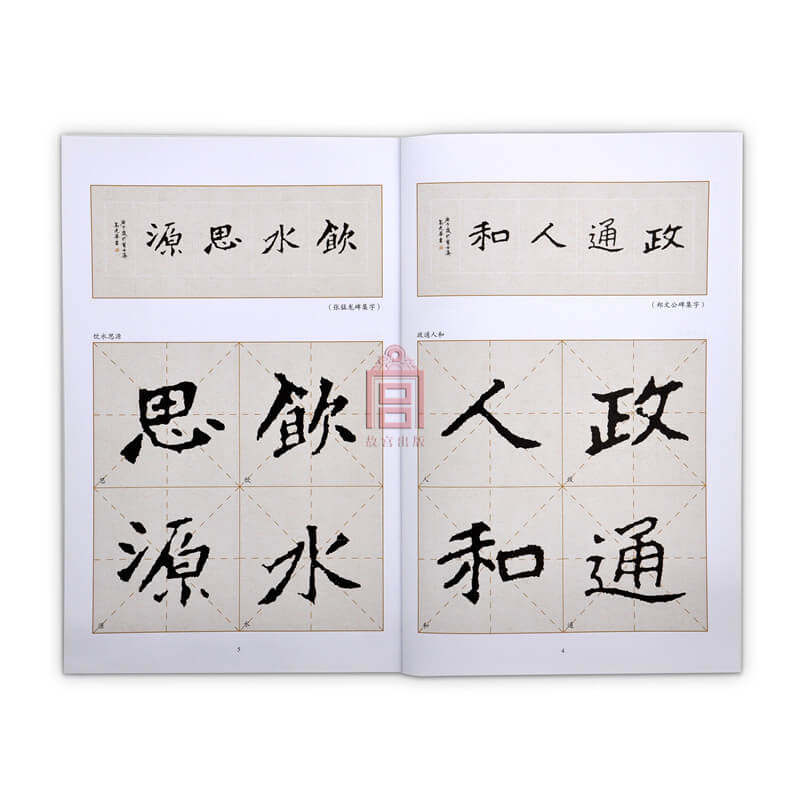 政通人和
（郑文公碑集字）
政通人和
政
政
通
通
人
人
和
和
4
飲水思源
（张猛龙碑集字）
饮水思源
飲
饮
水
水
思
思
源
源
5
故宫出版